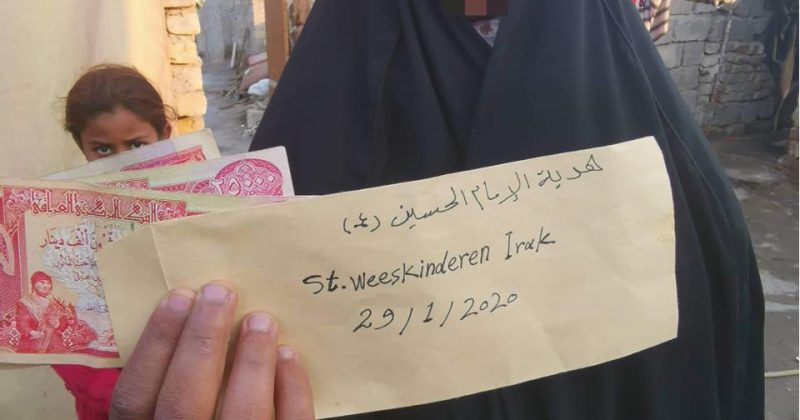 هدية الإمام الحسين (ع)
St. Weeskinderen Irak
29/1/2020
البنك المركزي العراقي
ألف دينار